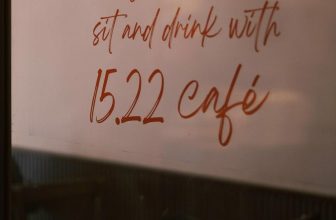 sit and drink with
15.22 café